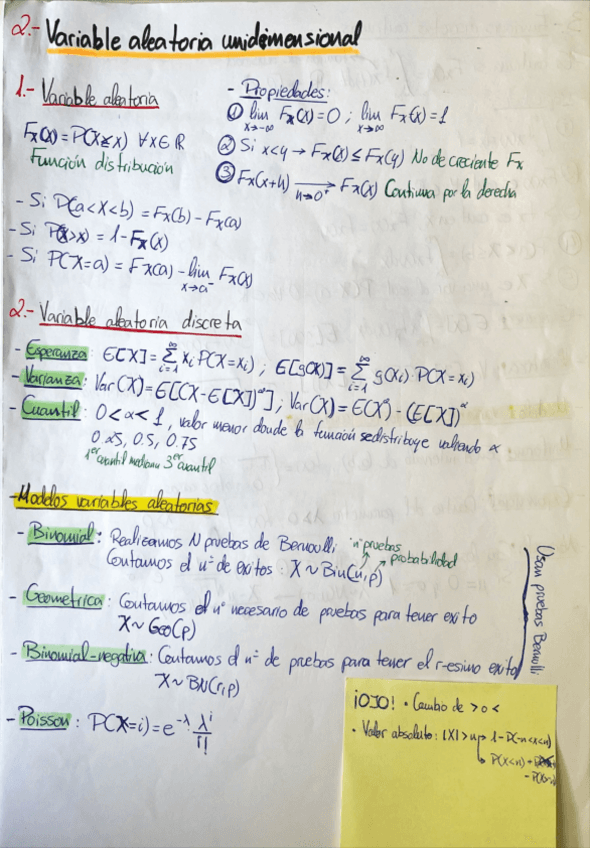 2.- Variable aleatoria unidimensional
1.- Variable aleatoria
Fx(x)=P(X≤x) ∀x∈ℝ
Función distribución
- Propiedades:
① lim Fx(x)=0 ; lim Fx(x)=1
x→-∞ x→∞
② Si x<y → Fx(x) ≤ Fx(y) No decreciente Fx
③ Fx(x+h) → Fx(x) Continua por la derecha
h→0⁺
- Si P(a<X<b) = Fx(b) - Fx(a)
- Si P(X>x) = 1 - Fx(x)
- Si P(X=a) = Fx(a) - lim Fx(x)
x→a⁻
2.- Variable aleatoria discreta
- Esperanza: E[X] = ∑ xi P(X=xi) ; E[g(X)] = ∑ g(xi) · P(X=xi)
- Varianza: Var(X) = E[(X-E[X])²] ; Var(X) = E(X²) - (E[X])²
- Cuantil: 0<α<1, valor menor donde la función se distribuye valiendo α
0.25, 0.5, 0.75
1er cuantil mediana 3er cuantil
- Modelos variables aleatorias
- Binomial: Realizamos N pruebas de Bernoulli "n" pruebas
Contamos el nº de exitos : X ~ Bin(n,p) probabilidad
- Geometrica: Contamos el nº necesario de pruebas para tener exito
X ~ Geo(p)
- Binomial-negativa: Contamos el nº de pruebas para tener el r-esimo exito
X ~ BN(r,p)
Usan pruebas Bernoulli
- Poisson: P(X=i) = e^-λ · λ^i / i!
¡OJO! · Cambio de > o <
· Valor absoluto: |X|>n → 1-P(-n<x<n)
P(X<n)